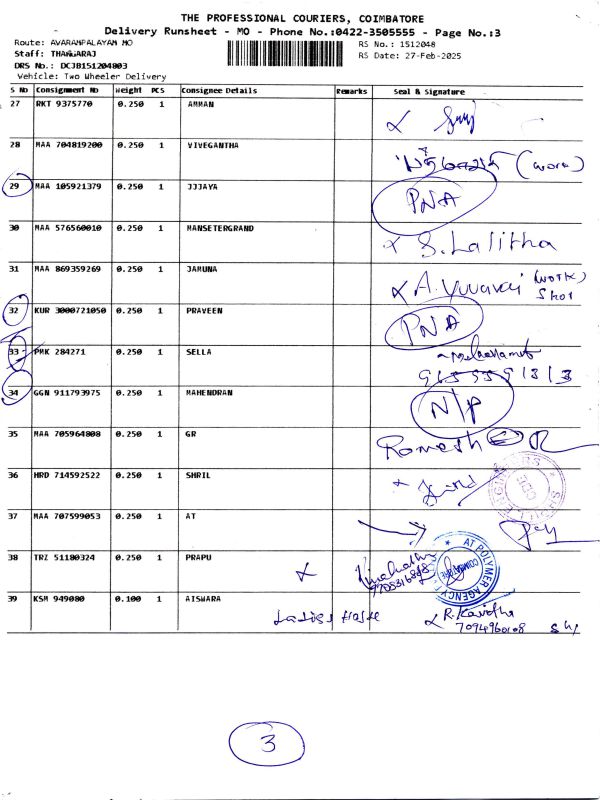 THE PROFESSIONAL COURIERS, COIMBATORE
Delivery Runsheet - MO - Phone No.:0422-3505555 - Page No.:3
Route: AVARAMPALAYAM MO
RS No.: 1512048
Staff: THANGARAJ
RS Date: 27-Feb-2025
DRS No.: DCJB151204803
Vehicle: Two Wheeler Delivery
S No Consignment No Weight PCS Consignee Details Remarks Seal & Signature
27 RKT 9375770 0.250 1 AMMAN
28 MAA 704819200 0.250 1 VIVEGANTHA (work)
29 MAA 105921379 0.250 1 JJJAYA PNA
30 MAA 576560010 0.250 1 MANSETERGRAND S. Lalitha
31 MAA 869359269 0.250 1 JAMUNA A. Yuvaraj (work)
32 KUR 3000721050 0.250 1 PRAVEEN PNA
33 PMK 284271 0.250 1 SELLA
34 GGN 911793975 0.250 1 MAHENDRAN N/P
35 MAA 705964808 0.250 1 GR Romesh
36 HRD 714592522 0.250 1 SHRIL
37 MAA 707599053 0.250 1 AT
38 TRZ 51180324 0.250 1 PRAPU
AT POLYMER AGENCY
COIMBATORE
39 KSM 949080 0.100 1 AISWARA Ladies Hostel R. Kavitha
3